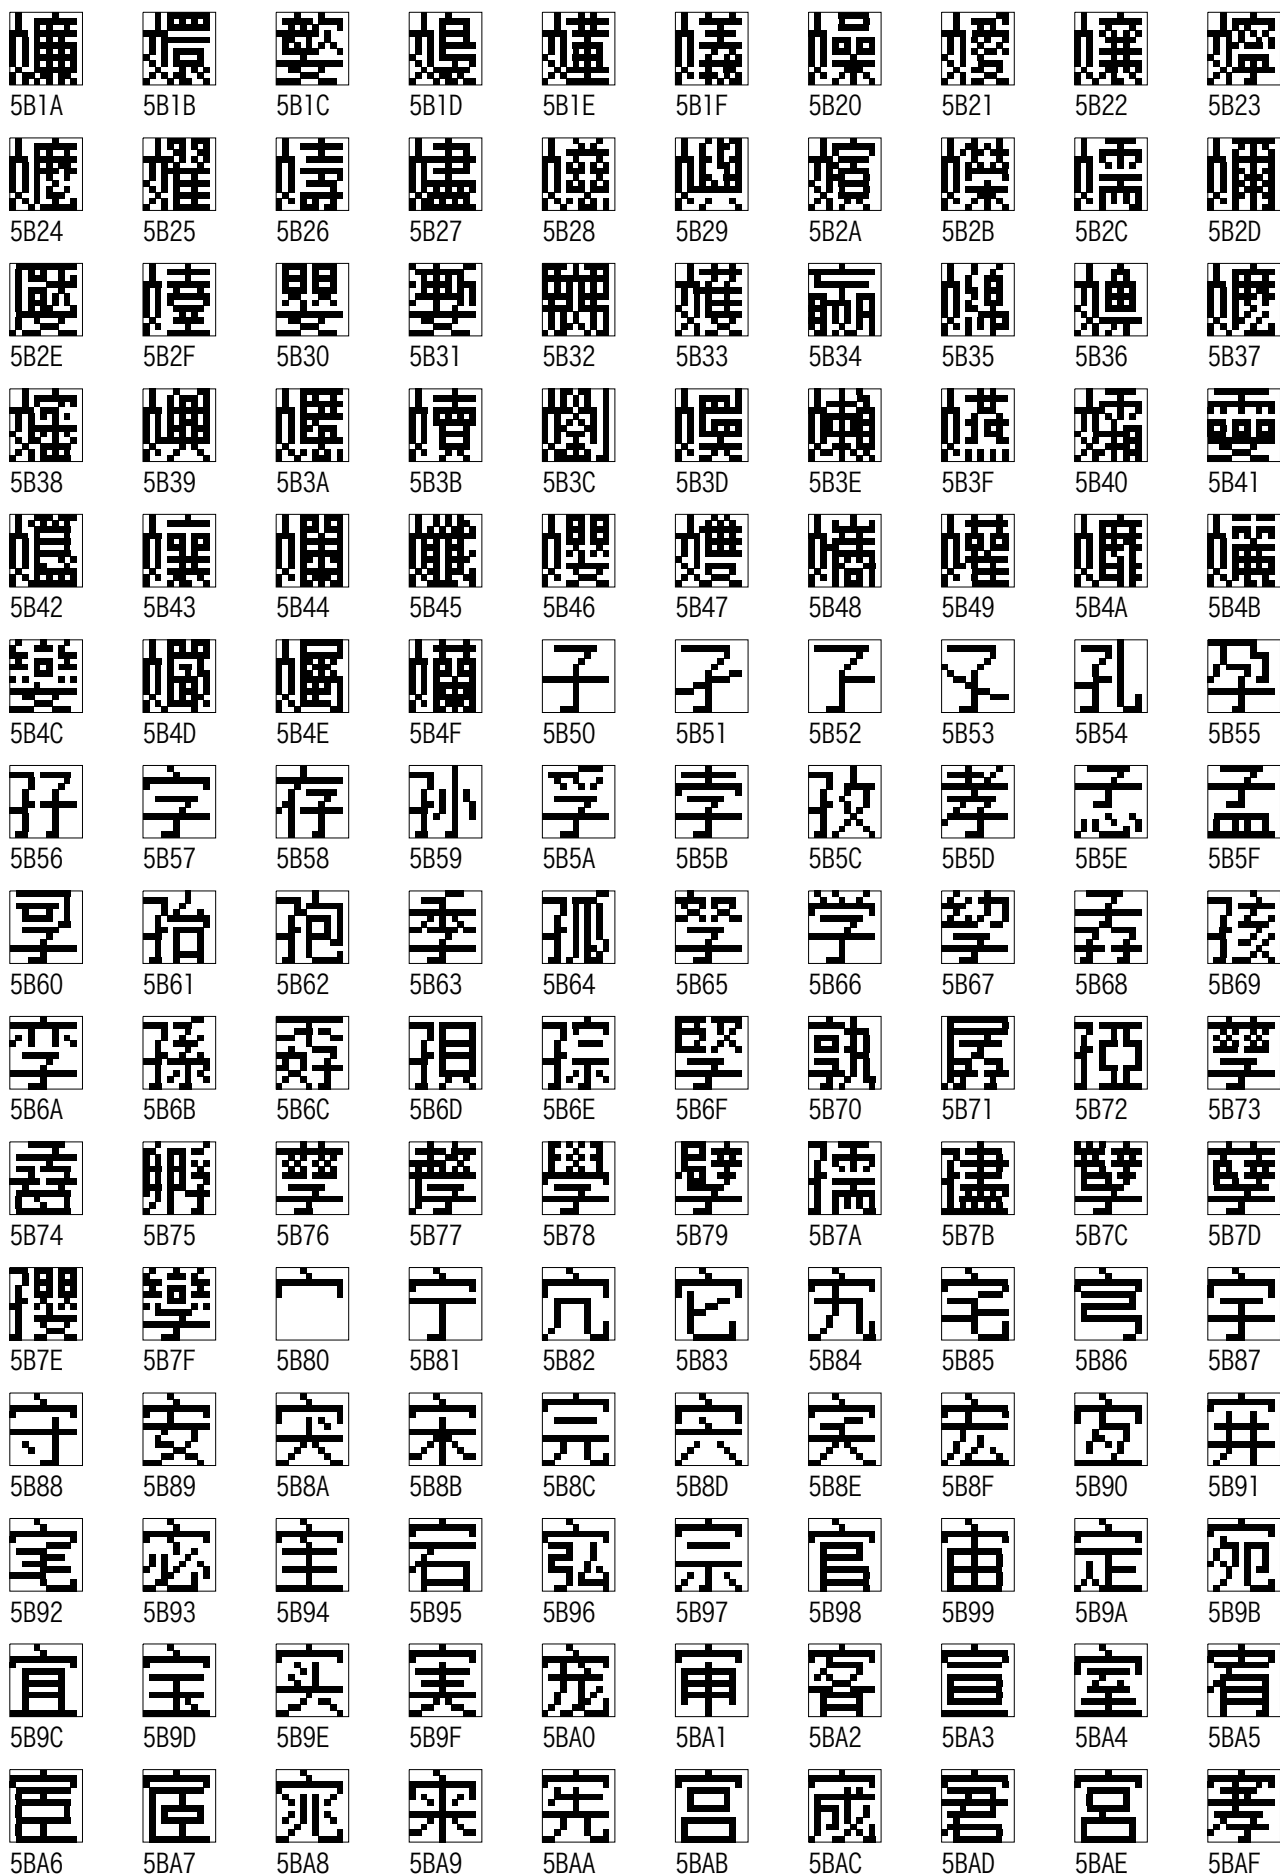 嬚 嬛 嬜 嬝 嬞 嬟 嬠 嬡 嬢 嬣
5B1A 5B1B 5B1C 5B1D 5B1E 5B1F 5B20 5B21 5B22 5B23
嬤 嬥 嬦 嬧 嬨 嬩 嬪 嬫 嬬 嬭
5B24 5B25 5B26 5B27 5B28 5B29 5B2A 5B2B 5B2C 5B2D
嬮 嬯 嬰 嬱 嬲 嬳 嬴 嬵 嬶 嬷
5B2E 5B2F 5B30 5B31 5B32 5B33 5B34 5B35 5B36 5B37
嬸 嬹 嬺 嬻 嬼 嬽 嬾 嬿 孀 孁
5B38 5B39 5B3A 5B3B 5B3C 5B3D 5B3E 5B3F 5B40 5B41
孂 孃 孄 孅 孆 孇 孈 孉 孊 孋
5B42 5B43 5B44 5B45 5B46 5B47 5B48 5B49 5B4A 5B4B
孌 孍 孎 孏 子 孑 孒 孓 孔 孕
5B4C 5B4D 5B4E 5B4F 5B50 5B51 5B52 5B53 5B54 5B55
孖 字 存 孙 孚 孛 孜 孝 孞 孟
5B56 5B57 5B58 5B59 5B5A 5B5B 5B5C 5B5D 5B5E 5B5F
孠 孡 孢 季 孤 孥 学 孧 孨 孩
5B60 5B61 5B62 5B63 5B64 5B65 5B66 5B67 5B68 5B69
孪 孫 孬 孭 孮 孯 孰 孱 孲 孳
5B6A 5B6B 5B6C 5B6D 5B6E 5B6F 5B70 5B71 5B72 5B73
孴 孵 孶 孷 學 孹 孺 孻 孼 孽
5B74 5B75 5B76 5B77 5B78 5B79 5B7A 5B7B 5B7C 5B7D
孾 孿 宀 宁 宂 它 宄 宅 宆 宇
5B7E 5B7F 5B80 5B81 5B82 5B83 5B84 5B85 5B86 5B87
守 安 宊 宋 完 宍 宎 宏 宐 宑
5B88 5B89 5B8A 5B8B 5B8C 5B8D 5B8E 5B8F 5B90 5B91
宒 宓 宔 宕 宖 宗 官 宙 定 宛
5B92 5B93 5B94 5B95 5B96 5B97 5B98 5B99 5B9A 5B9B
宜 宝 实 実 宠 审 客 宣 室 宥
5B9C 5B9D 5B9E 5B9F 5BA0 5BA1 5BA2 5BA3 5BA4 5BA5
宦 宧 宨 宩 宪 宫 宬 宭 宮 宯
5BA6 5BA7 5BA8 5BA9 5BAA 5BAB 5BAC 5BAD 5BAE 5BAF